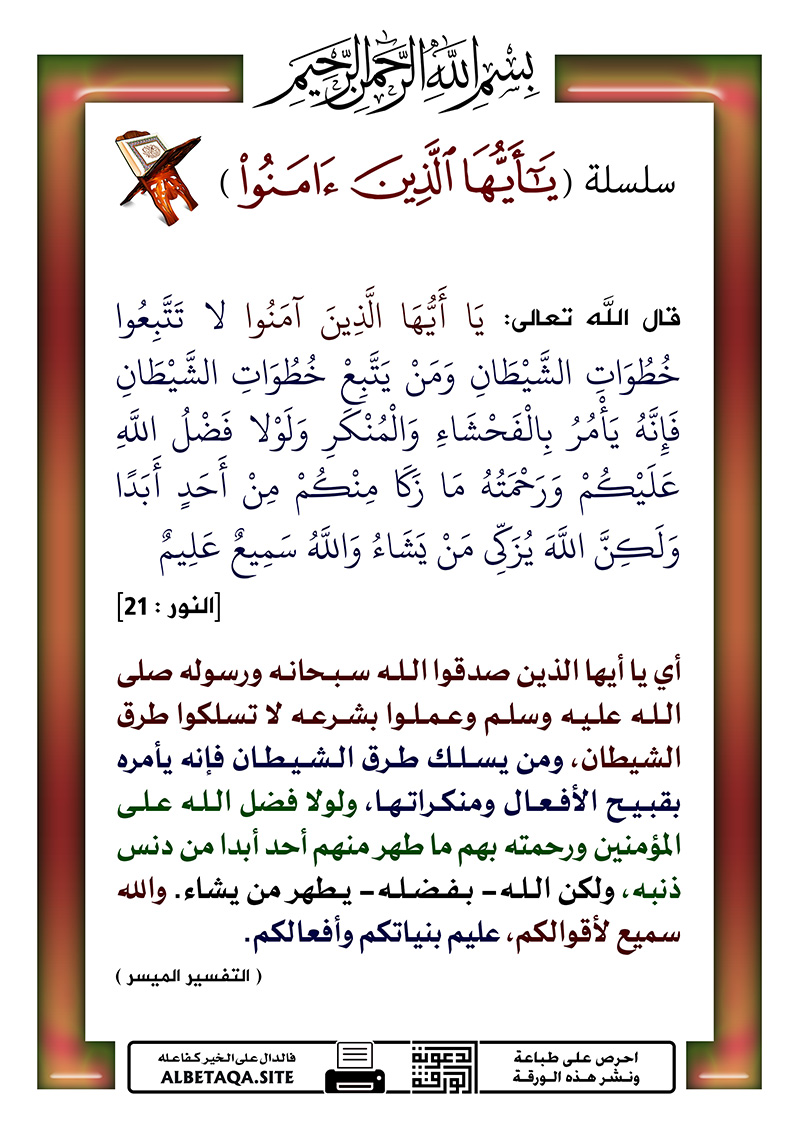 بِسْمِ اللَّهِ الرَّحْمَٰنِ الرَّحِيمِ
سلسلة ( يَٰٓأَيُّهَا ٱلَّذِينَ ءَامَنُوا۟ )
قال اللَّه تعالى: يَا أَيُّهَا الَّذِينَ آمَنُوا لا تَتَّبِعُوا
خُطُوَاتِ الشَّيْطَانِ وَمَنْ يَتَّبِعْ خُطُوَاتِ الشَّيْطَانِ
فَإِنَّهُ يَأْمُرُ بِالْفَحْشَاءِ وَالْمُنْكَرِ وَلَوْلا فَضْلُ اللَّهِ
عَلَيْكُمْ وَرَحْمَتُهُ مَا زَكَا مِنْكُمْ مِنْ أَحَدٍ أَبَدًا
وَلَكِنَّ اللَّهَ يُزَكِّي مَنْ يَشَاءُ وَاللَّهُ سَمِيعٌ عَلِيمٌ
[النور : 21]
أي يا أيها الذين صدقوا الله سبحانه ورسوله صلى
الله عليه وسلم وعملوا بشرعه لا تسلكوا طرق
الشيطان، ومن يسلك طرق الشيطان فإنه يأمره
بقبيح الأفعال ومنكراتها، ولولا فضل الله على
المؤمنين ورحمته بهم ما طهر منهم أحد أبدا من دنس
ذنبه، ولكن الله- بفضله- يطهر من يشاء. والله
سميع لأقوالكم، عليم بنياتكم وأفعالكم.
( التفسير الميسر )
احرص على طباعة
ونشر هذه الورقة
الورقة الدعوية
فالدال على الخير كفاعله
ALBETAQA.SITE